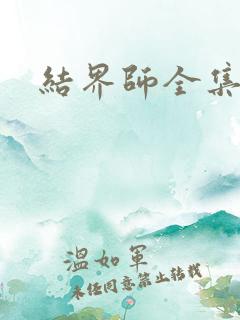 結界師全集
溫如軍
未經同意禁止轉載